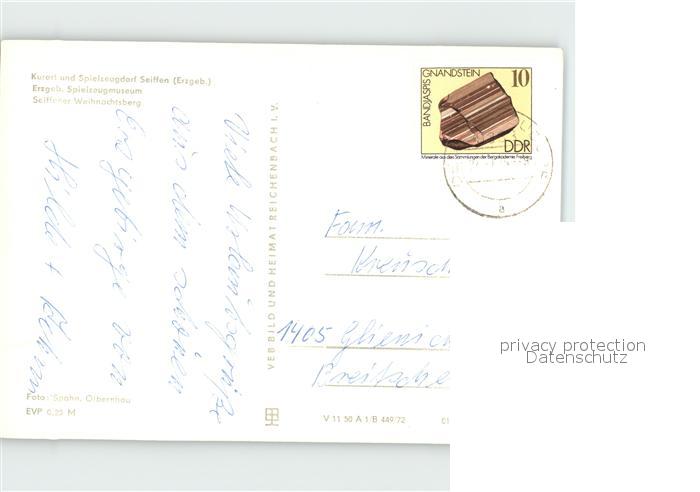 Kurort und Spielzeugdorf Seiffen (Erzgeb.)
Erzgeb. Spielzeugmuseum
Seiffener Weihnachtsberg
Viele Urlaubsgrüße
aus dem schönen
Erzgebirge von
Hilde +
Foto: Spahn, Olbernhau
EVP 0,25 M
VEB BILD UND HEIMAT REICHENBACH I. V.
BANDJASPIS
GNANDSTEIN
10
DDR
Minerale aus den Sammlungen der Bergakademie Freiberg
a
Fam.
Kreusch
1405 Glienick
Breitsche
V 11 50 A 1/B 449/72
01
privacy protection
Datenschutz